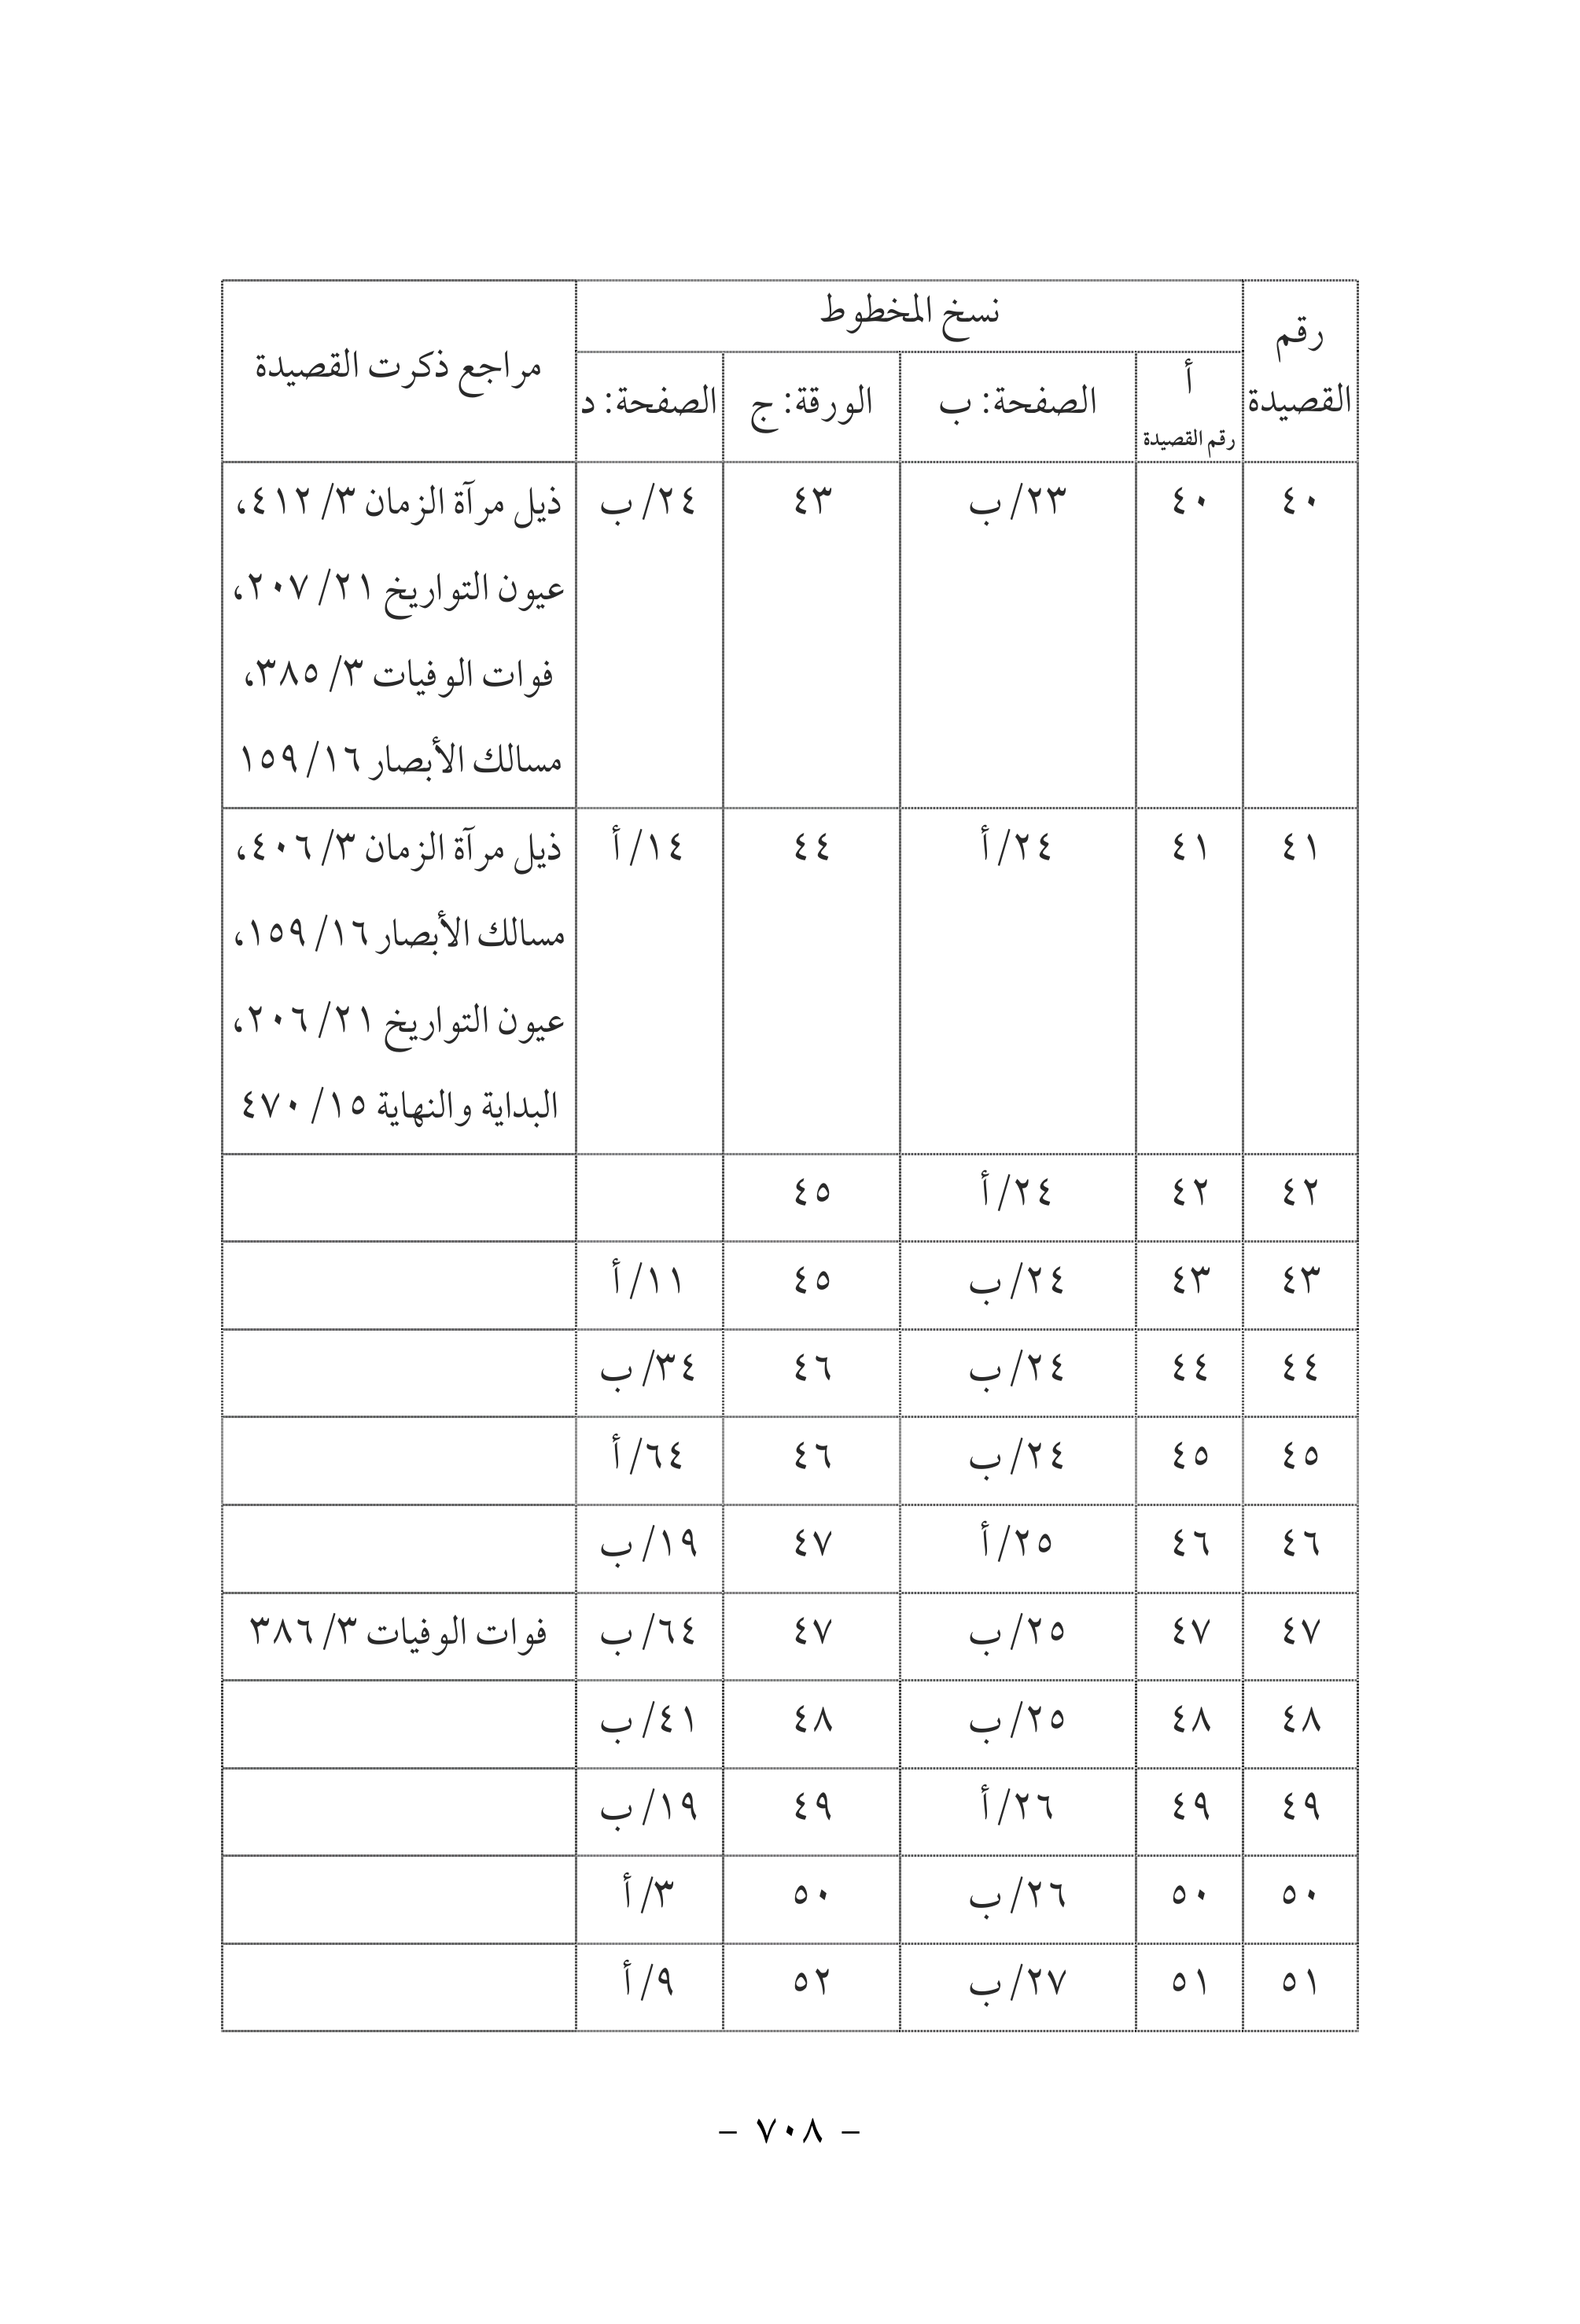 رقم القصيدة
نسخ المخطوط
مراجع ذكرت القصيدة
أ
رقم القصيدة
الصفحة: ب
الورقة: ج
الصفحة: د
٤٠ ٤٠ ٢٣/ ب ٤٣ ٢٤/ ب ذيل مرآة الزمان ٣/ ٤١٢،
عيون التواريخ ٢١/ ٢٠٧،
فوات الوفيات ٣/ ٣٨٥،
مسالك الأبصار ١٦/ ١٥٩
٤١ ٤١ ٢٤/ أ ٤٤ ١٤/ أ ذيل مرآة الزمان ٣/ ٤٠٦،
مسالك الأبصار ١٦/ ١٥٩،
عيون التواريخ ٢١/ ٢٠٦،
البداية والنهاية ١٥/ ٤٧٠
٤٢ ٤٢ ٢٤/ أ ٤٥
٤٣ ٤٣ ٢٤/ ب ٤٥ ١١/ أ
٤٤ ٤٤ ٢٤/ ب ٤٦ ٣٤/ ب
٤٥ ٤٥ ٢٤/ ب ٤٦ ٦٤/ أ
٤٦ ٤٦ ٢٥/ أ ٤٧ ١٩/ ب
٤٧ ٤٧ ٢٥/ ب ٤٧ ٦٤/ ب فوات الوفيات ٣/ ٣٨٦
٤٨ ٤٨ ٢٥/ ب ٤٨ ٤١/ ب
٤٩ ٤٩ ٢٦/ أ ٤٩ ١٩/ ب
٥٠ ٥٠ ٢٦/ ب ٥٠ ٣/ أ
٥١ ٥١ ٢٧/ ب ٥٢ ٩/ أ
- ٧٠٨ -